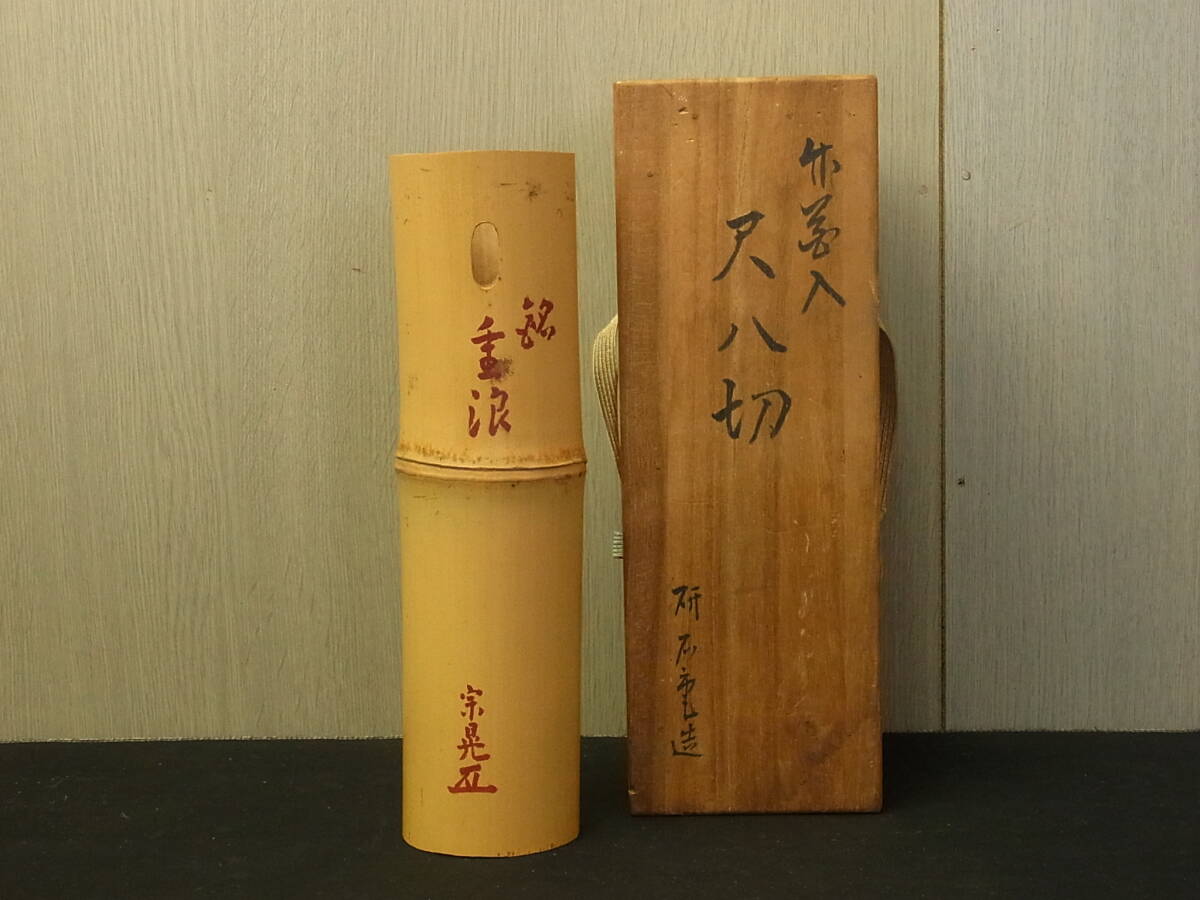 銘
重浪
宗晃
竹花入
尺八切
造